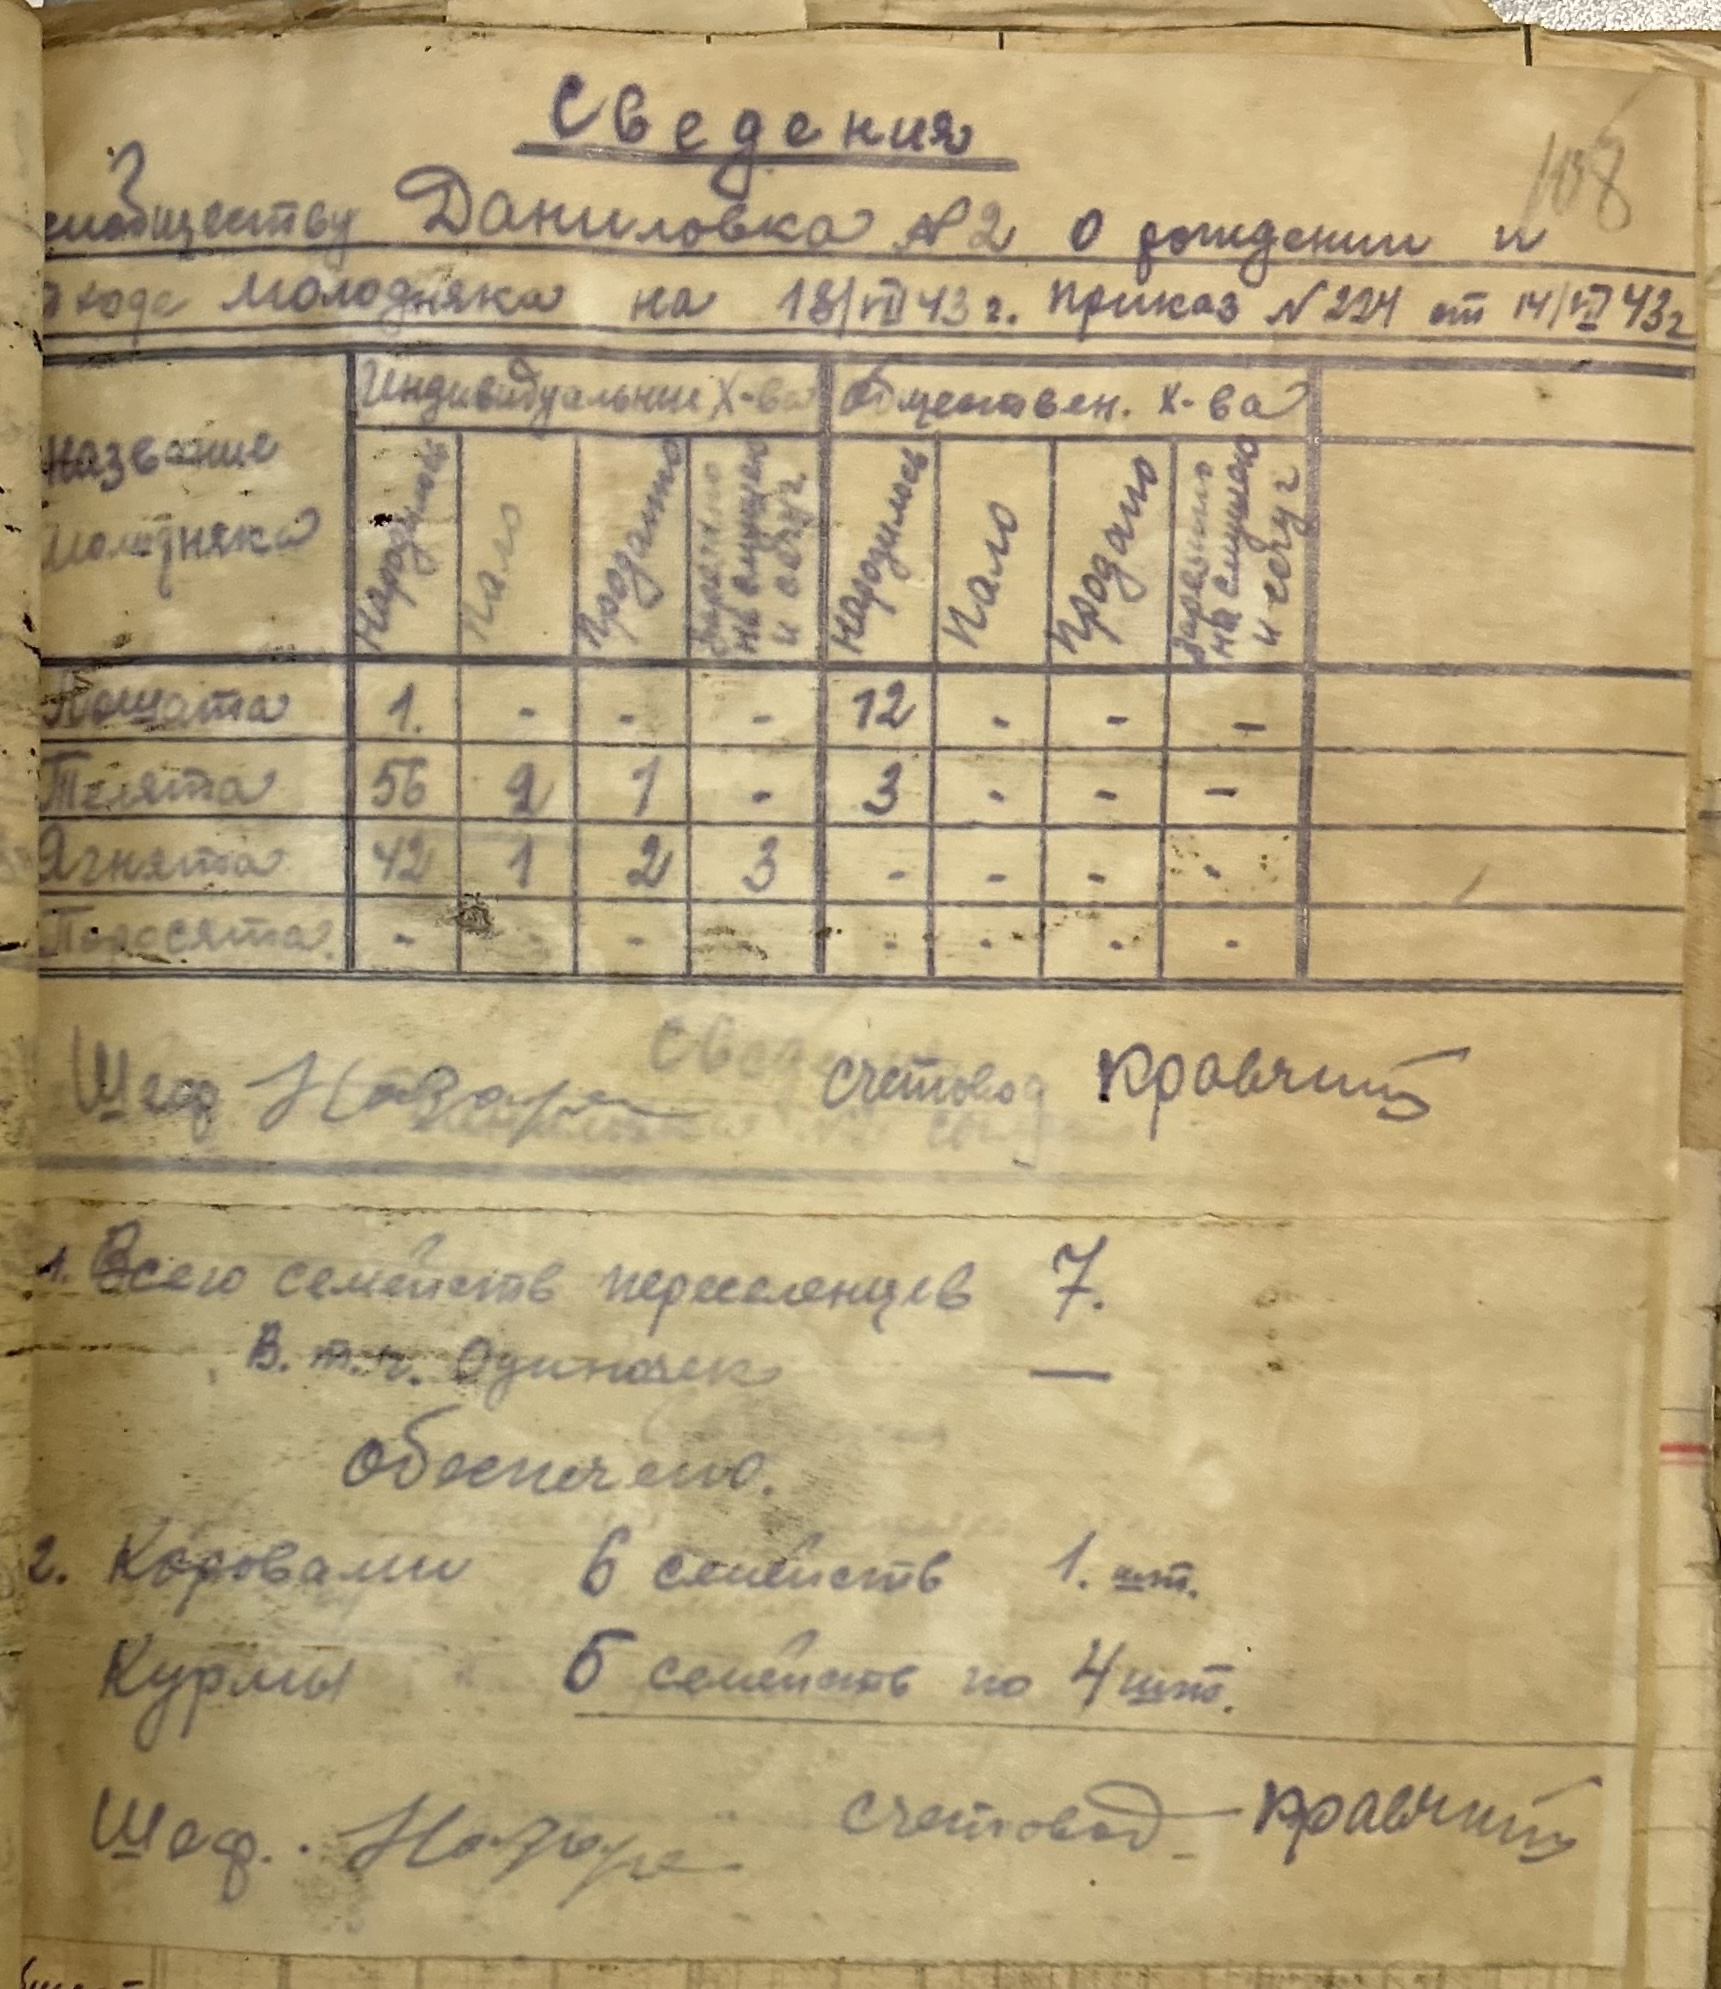 Сведения
108
Даниловка №2 о рождении и
молодняка на 18/VII 43 г. Приказ №224 от 14/VII 43 г
Название молодняка
Индивидуальные х-ва
Обществен. х-ва
Народилось
Пало
Продано
Зарезано на смушки и свежує
Народилось
Пало
Продано
Зарезано на смушки и
Лошата 1. - - - 12 - - -
Телята 56 2 1 - 3 - - -
Ягнята 42 1 2 3 - - - -
Поросята. - - - - - - -
Шеф Назаре Счетовод Кравчий
1. Всего семейств переселенцев 7.
В. т. ч. Одиночек —
Обеспечено.
2. Коровами 6 семейств 1. шт.
Курмы 5 семейств по 4 шт.
Шеф. Назаре Счетовод Кравчий